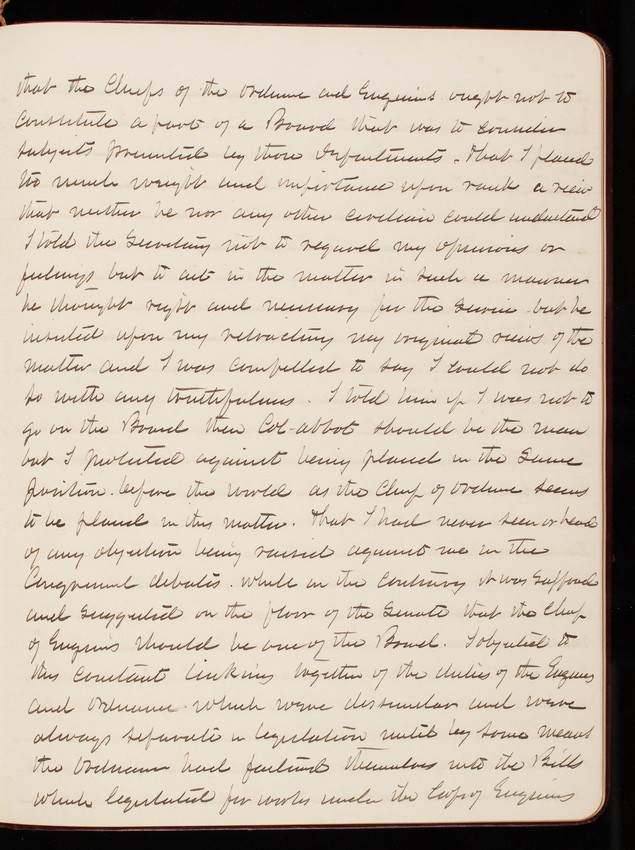 that the Chiefs of the Ordnance and Engineers ought not to
constitute a part of a Board that was to consider
subjects presented by those Departments. That I placed
too much weight and importance upon rank a view
that neither he nor any other civilian could understand
I told the Secretary not to regard my opinions or
feelings but to act in the matter in such a manner
he thought right and necessary for the service. but he
insisted upon my retracting my original views of the
matter and I was compelled to say I could not do
so with any truthfulness. I told him if I was not to
go on the Board then Col. Abbot should be the man
but I protested against being placed in the same
position before the world as the Chief of Ordnance seems
to be placed in this matter. That I had never seen or heard
of any objection being raised against me in the
Congressional debates. while on the contrary it was supposed
and suggested on the floor of the Senate that the Chief
of Engineers should be one of the Board. I objected to
this constant linking together of the duties of the Engineers
and Ordnance which were dissimilar and were
always separate in legislation until by some means
the Ordnance had fastened themselves into the Bills
which legislated for works under the Corps of Engineers